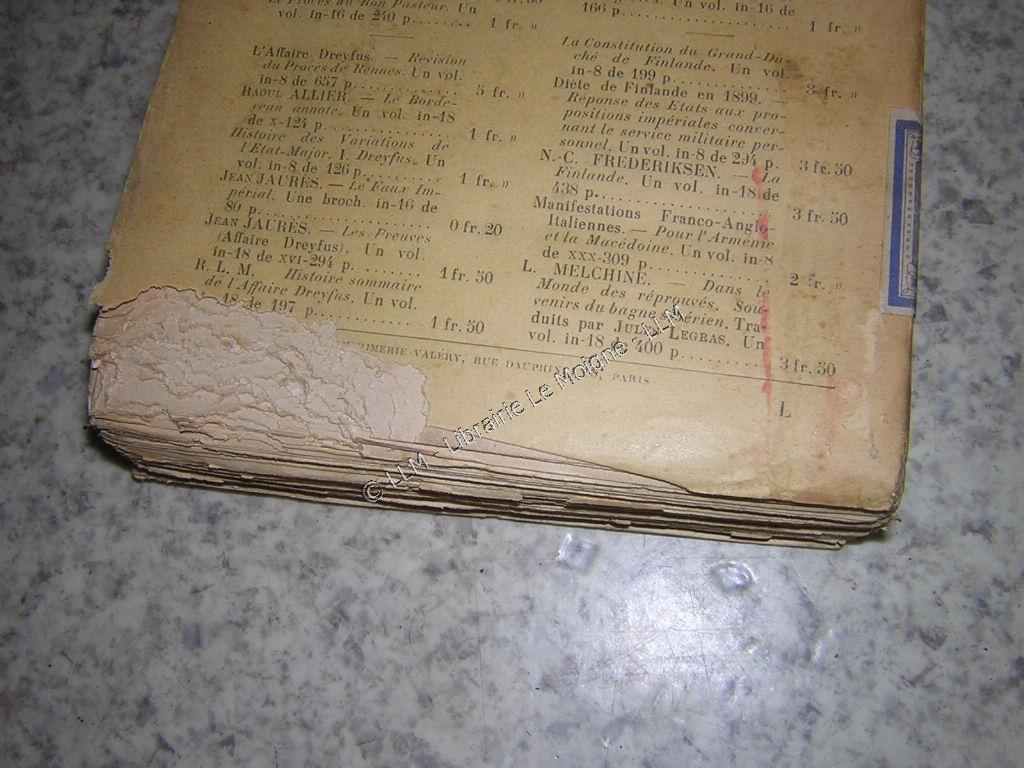 Le Procès du Bon Pasteur. Un
vol. in-16 de 240 p....... 1 fr. »
L'Affaire Dreyfus. — Revision
du Procès de Rennes. Un vol.
in-8 de 657 p............ 5 fr. »
RAOUL ALLIER. — Le Borde-
reau annoté. Un vol. in-18
de x-124 p............... 1 fr. »
Histoire des Variations de
l'Etat-Major. I. Dreyfus. Un
vol. in-8 de 126 p........ 1 fr. »
JEAN JAURÈS. — Le Faux Im-
périal. Une broch. in-16 de
80 p.................... 0 fr. 20
JEAN JAURÈS. — Les Preuves
(Affaire Dreyfus). Un vol.
in-18 de XVI-294 p. ....... 1 fr. 50
R. L. M. — Histoire sommaire
de l'Affaire Dreyfus. Un vol.
18 de 197 p............. 1 fr. 50
Un vol. in-16 de
166 p................... 1 fr. »
La Constitution du Grand-Du-
ché de Finlande. Un vol.
in-8 de 199 p............ 3 fr. »
Diète de Finlande en 1899. —
Réponse des Etats aux pro-
positions impériales concer-
nant le service militaire per-
sonnel. Un vol. in-8 de 294 p. 3 fr. 50
N.-C. FREDERIKSEN. — La
Finlande. Un vol. in-18 de
438 p................... 3 fr. 50
Manifestations Franco-Anglo-
Italiennes. — Pour l'Arménie
et la Macédoine. Un vol. in-8
de XXX-309 p............. 2 fr. »
L. MELCHINE. — Dans le
Monde des réprouvés. Sou-
venirs du bagne sibérien. Tra-
duits par JULES LEGRAS. Un
vol. in-18 de 400 p......... 3 fr. 50
RIMERIE VALÉRY, RUE DAUPHINE, PARIS
L
© LLM - Librairie Le Moigne - LLM